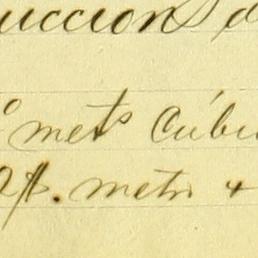 uccion d
mets Cúbi
metro +